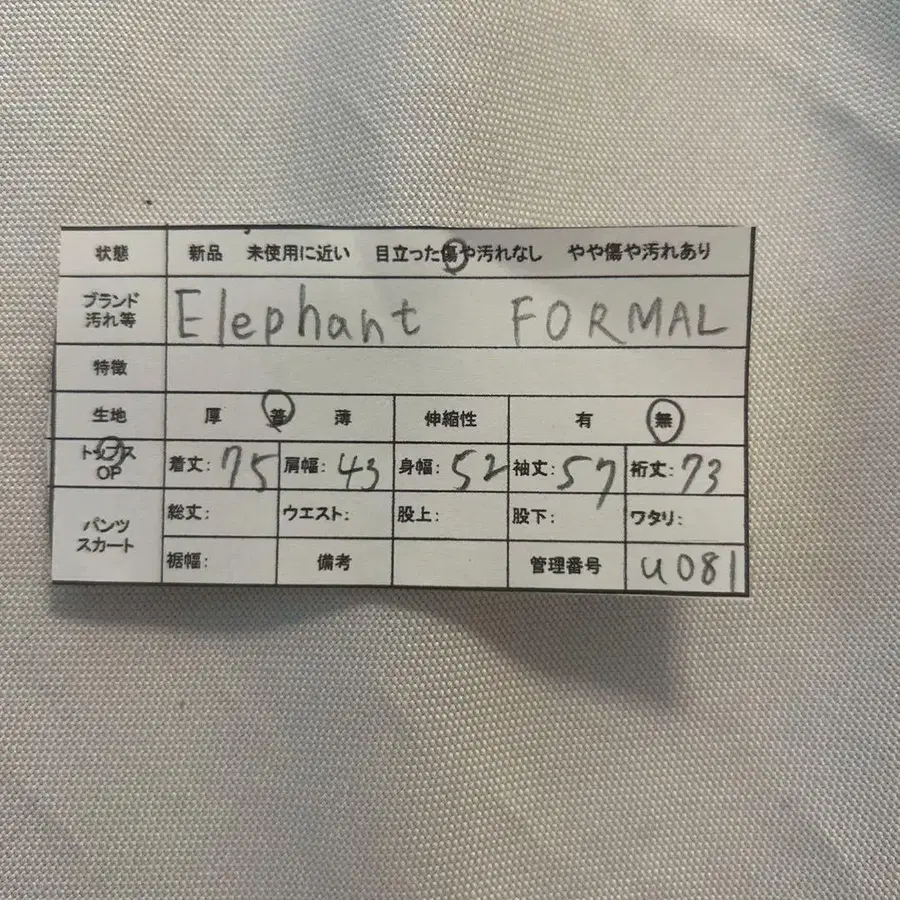 状態 新品 未使用に近い 目立った傷や汚れなし やや傷や汚れあり
ブランド
汚れ等 Elephant FORMAL
特徴
生地 厚 普 薄 伸縮性 有 無
トップス
OP 着丈: 75 肩幅: 43 身幅: 52 袖丈: 57 裄丈: 73
パンツ
スカート 総丈: ウエスト: 股上: 股下: ワタリ:
裾幅: 備考 管理番号 u081